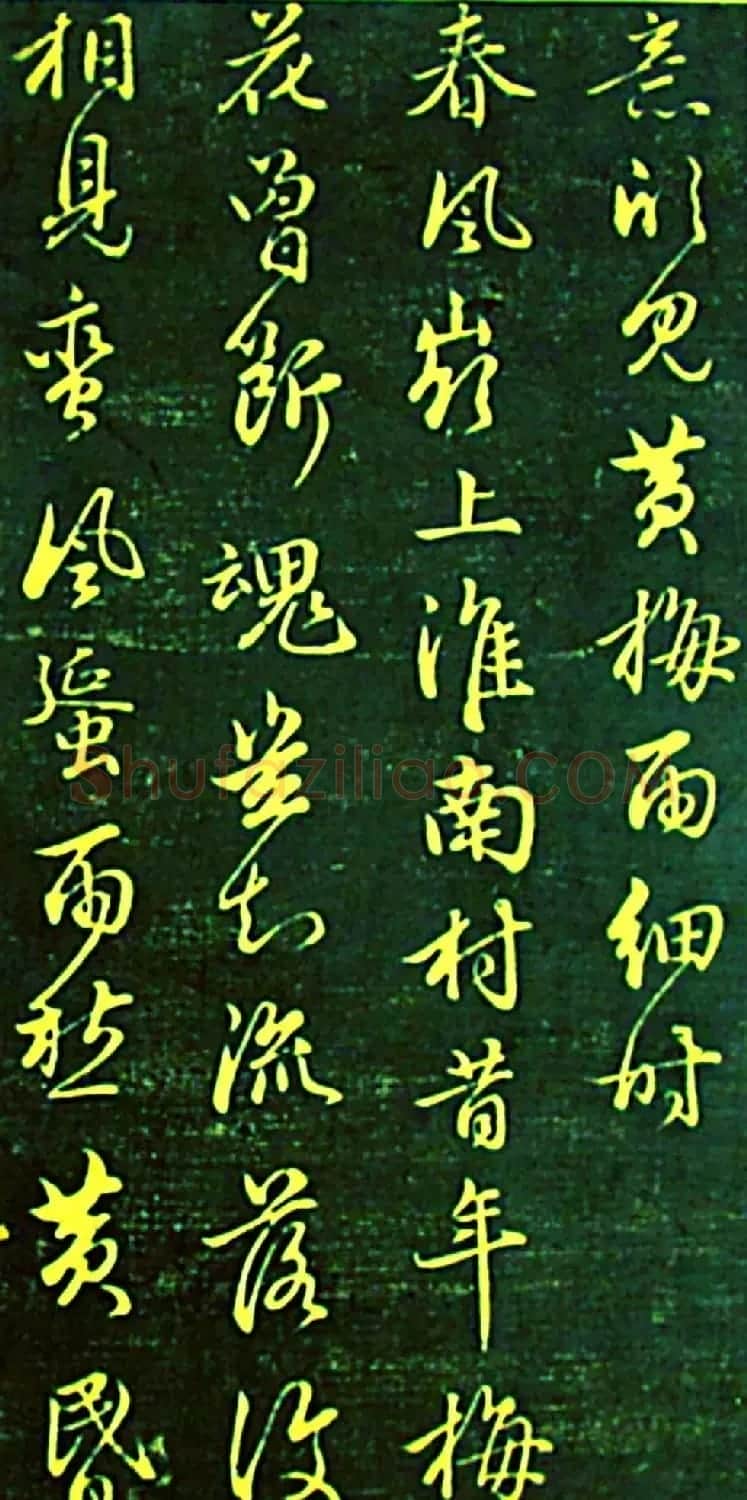 意見黄梅雨細時
春風嶺上淮南村昔年梅
花曾斷魂豈知流落復
相見蠻風蜑雨愁黄昏
Shufaziliao.COM